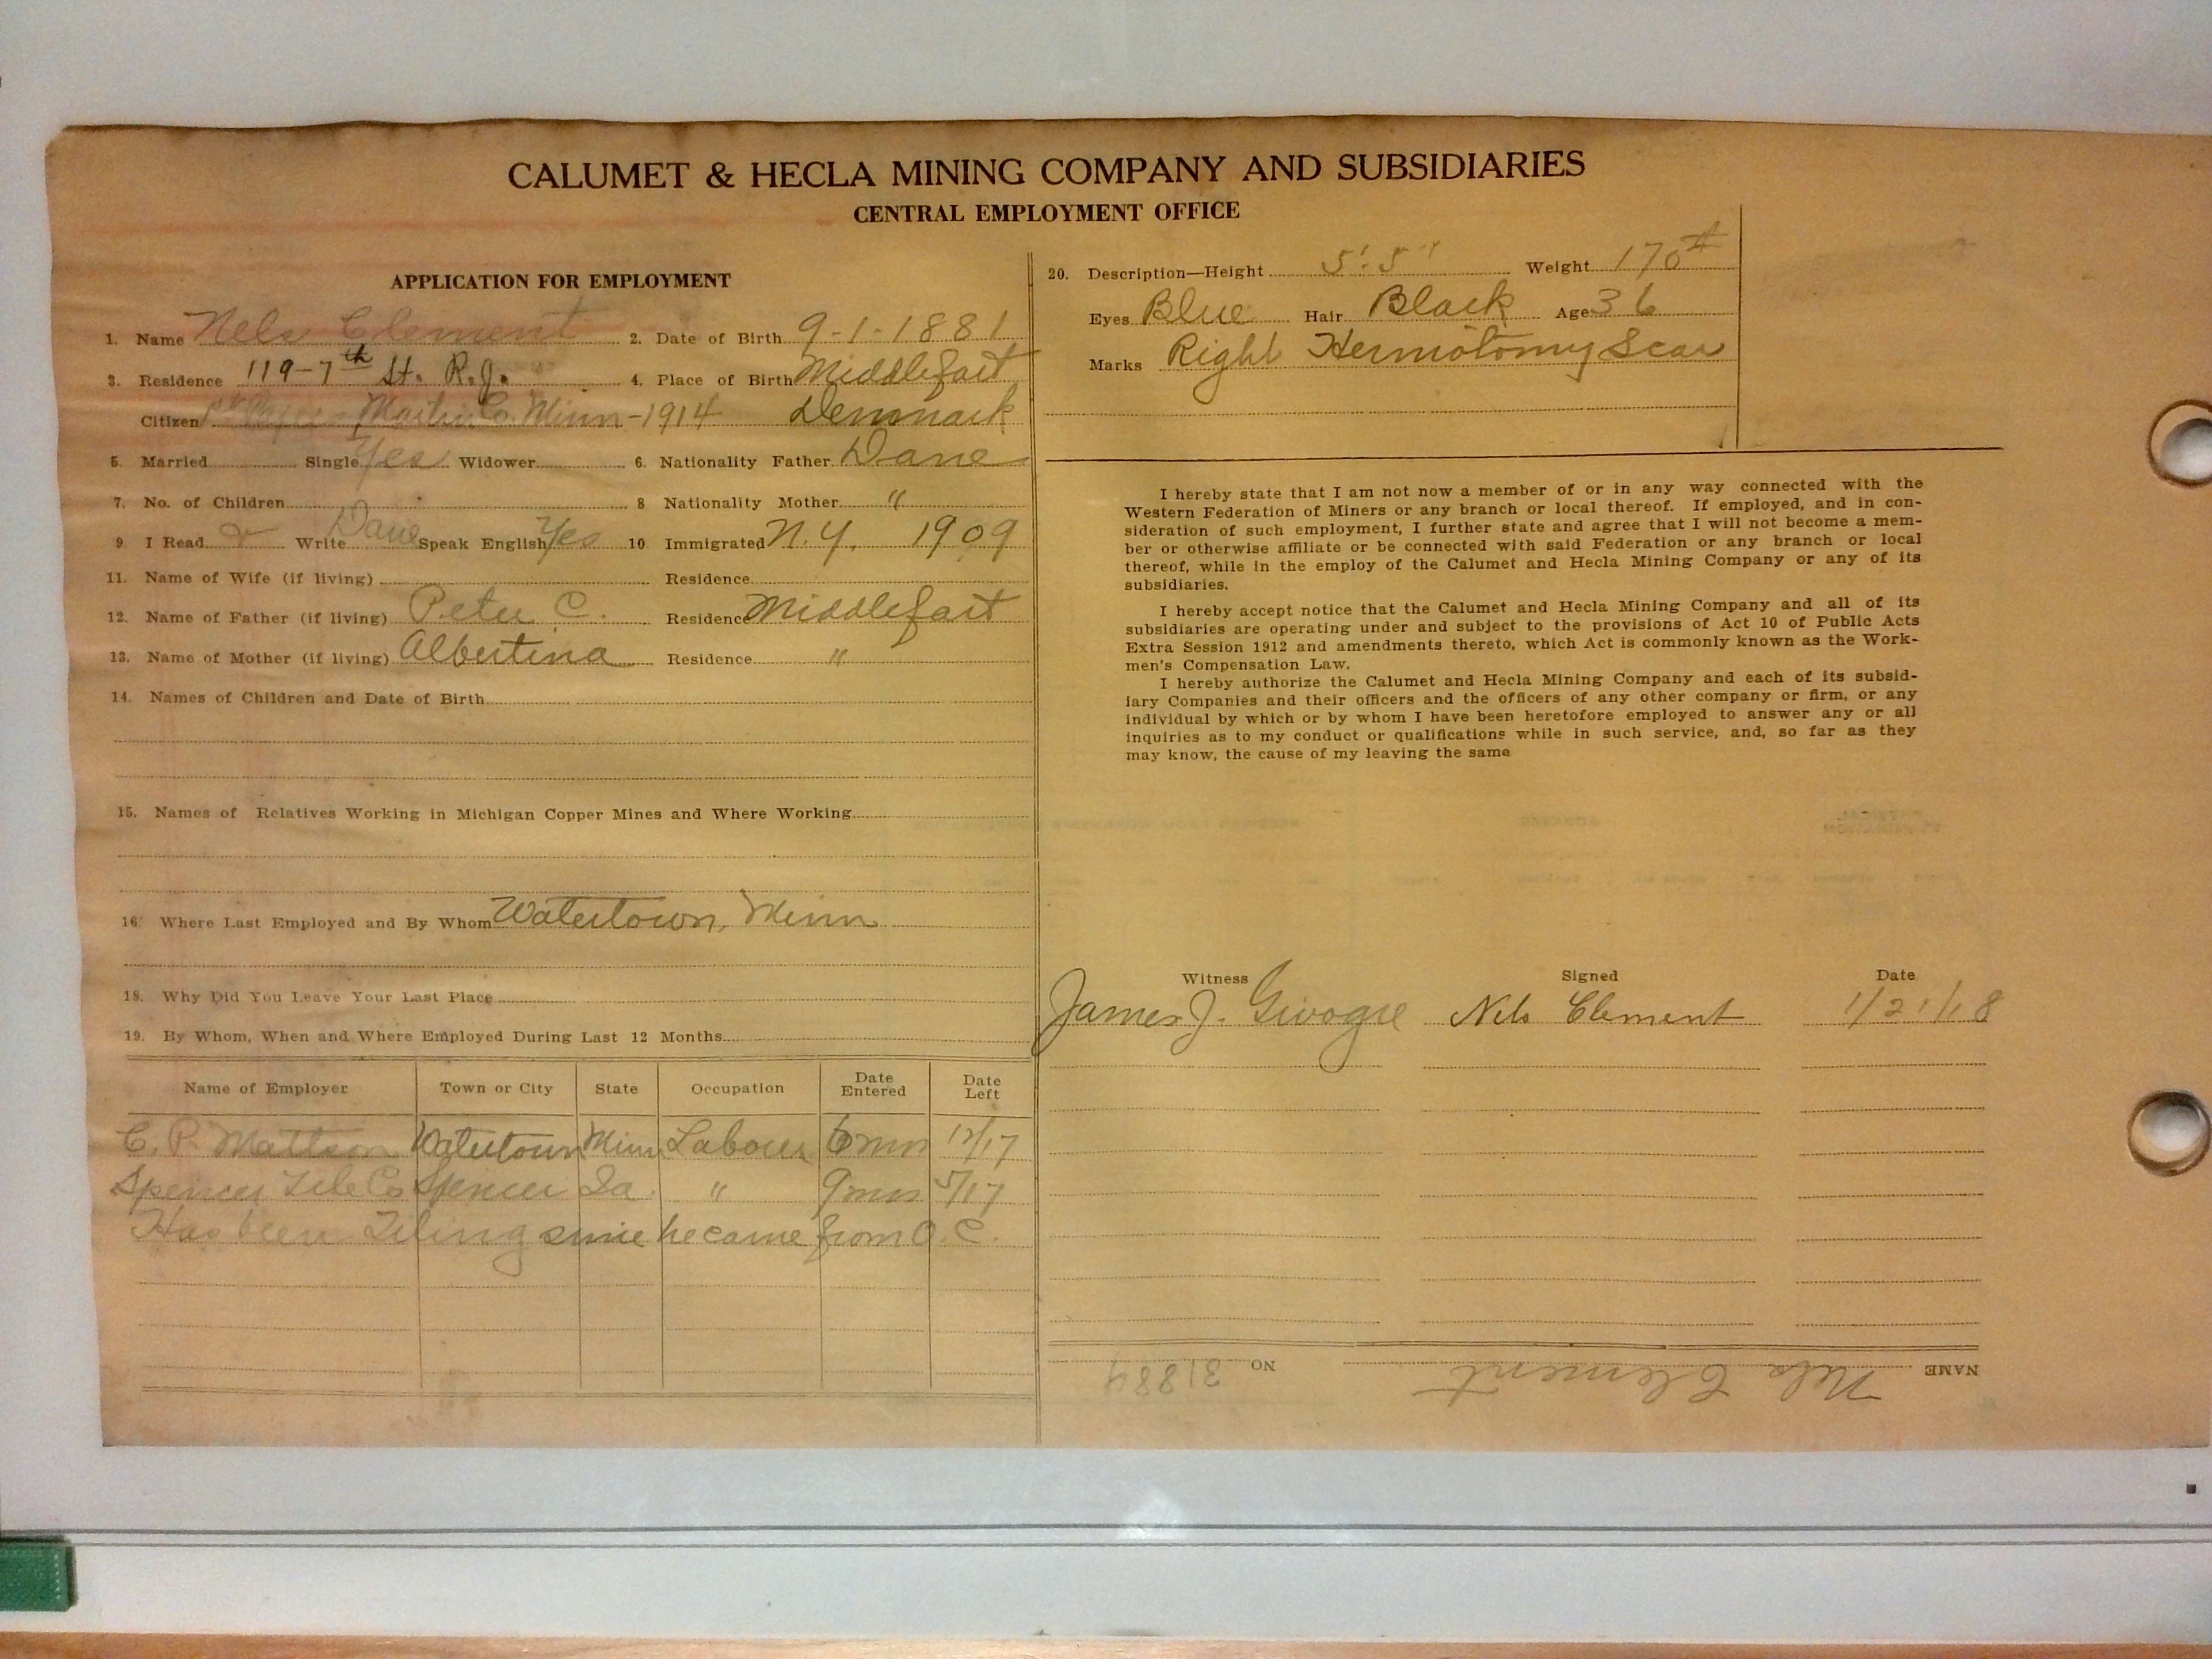 CALUMET & HECLA MINING COMPANY AND SUBSIDIARIES
CENTRAL EMPLOYMENT OFFICE
APPLICATION FOR EMPLOYMENT
1. Name Nels Clement 2. Date of Birth 9-1-1881
3. Residence 119-7th St. R.J. 4. Place of Birth Middlefart
Citizen 1st Papers Martin Co. Minn - 1914 Denmark
5. Married Single Yes Widower 6. Nationality Father Dane
7. No. of Children 8 Nationality Mother "
9. I Read & Write Dane Speak English Yes 10 Immigrated N.Y. 1909
11. Name of Wife (if living) Residence
12. Name of Father (if living) Peter C. Residence Middlefart
13. Name of Mother (if living) Albertina Residence "
14. Names of Children and Date of Birth
15. Names of Relatives Working in Michigan Copper Mines and Where Working
16. Where Last Employed and By Whom Watertown, Minn
18. Why Did You Leave Your Last Place
19. By Whom, When and Where Employed During Last 12 Months
Name of Employer Town or City State Occupation Date Entered Date Left
C. P. Mattson Watertown Minn Laborer 6 mos 12/17
Spencer Tile Co Spencer Ia. " 9 mos 5/17
Has been Tiling since he came from O.C.
20. Description—Height 5'.5" Weight 170#
Eyes Blue Hair Black Age 36
Marks Right Herniotomy Scar
I hereby state that I am not now a member of or in any way connected with the
Western Federation of Miners or any branch or local thereof. If employed, and in con-
sideration of such employment, I further state and agree that I will not become a mem-
ber or otherwise affiliate or be connected with said Federation or any branch or local
thereof, while in the employ of the Calumet and Hecla Mining Company or any of its
subsidiaries.
I hereby accept notice that the Calumet and Hecla Mining Company and all of its
subsidiaries are operating under and subject to the provisions of Act 10 of Public Acts
Extra Session 1912 and amendments thereto, which Act is commonly known as the Work-
men's Compensation Law.
I hereby authorize the Calumet and Hecla Mining Company and each of its subsid-
iary Companies and their officers and the officers of any other company or firm, or any
individual by which or by whom I have been heretofore employed to answer any or all
inquiries as to my conduct or qualifications while in such service, and, so far as they
may know, the cause of my leaving the same
Witness Signed Date
James J. Nels Clement 1/21/18
NAME Nels Clement NO 31884